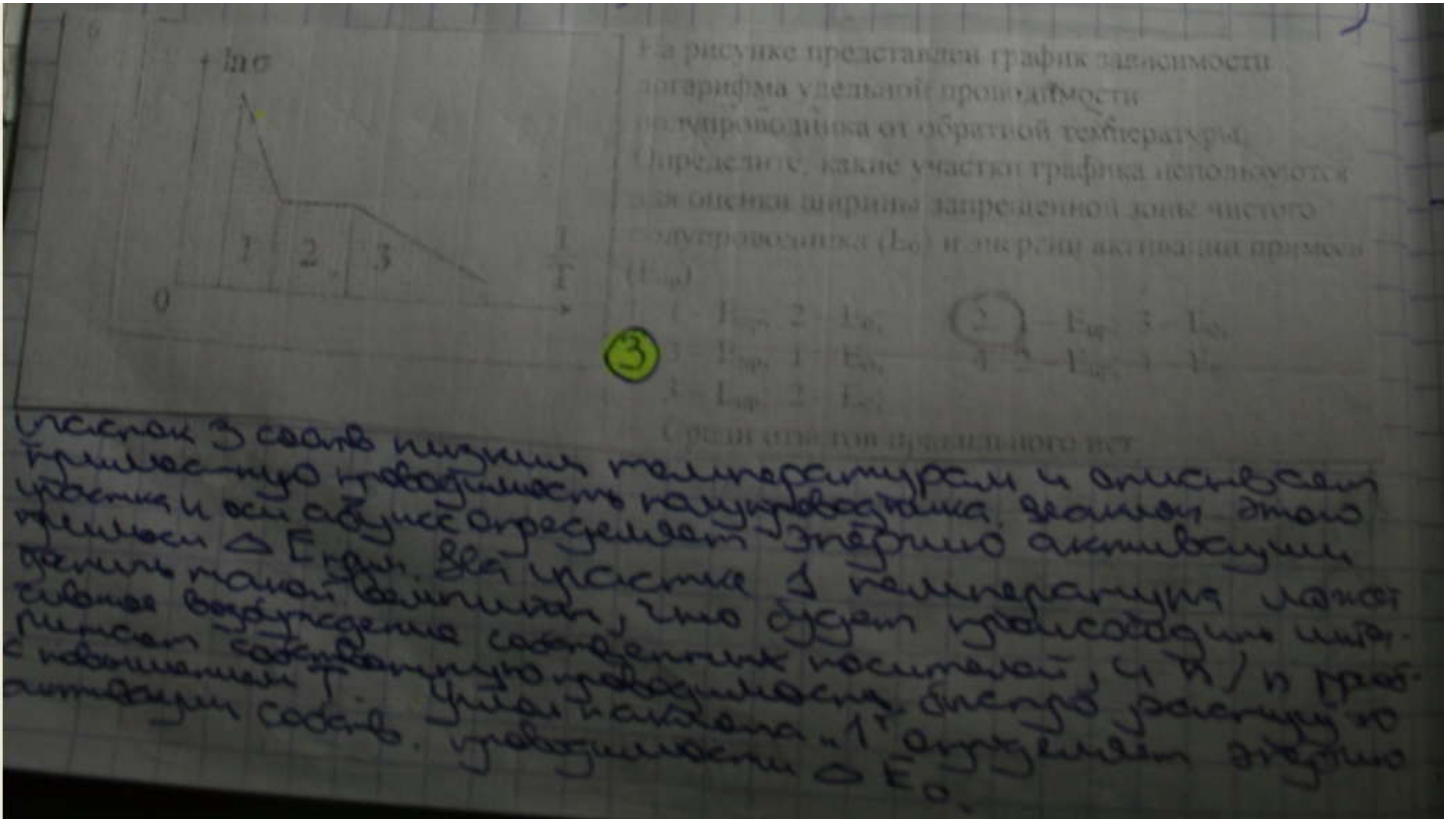 6
ln σ
1 2 3
1
T
0
На рисунке представлен график зависимости
логарифма удельной проводимости
полупроводника от обратной температуры.
Определите, какие участки графика используются
для оценки ширины запрещенной зоны чистого
полупроводника (E₀) и энергии активации примеси
(Eпр)
1 – Eпр, 2 – E₀, 2 1 – Eпр, 3 – E₀,
3 3 – Eпр, 1 – E₀, 4 2 – Eпр, 1 – E₀
3 – Eпр, 2 – E₀,
Среди ответов правильного нет
Участок 3 соотв низким температурам и описывает
примесную проводимость полупроводника. этого
участка и оси абцисс определяет энергию активации
примеси △ Eприм. Для участка 1 температура может
такой, что будет происходить интен-
сивное возбуждение собственных носителей, и n/n
собственную проводимость быстро
с повышением T. Угол наклона „1" определяет энергию
активации собств. проводимости △ E₀.